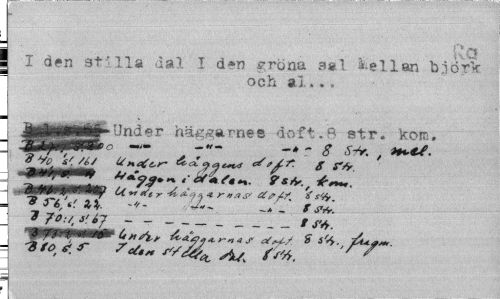 Ra
I den stilla dal I den gröna sal Mellan björk
och al...
Under häggarnes doft. 8 str. kom.
-"- -"- -"- 8 str., mel.
B 40, s. 161 Under häggens doft. 8 str.
Häggen i dalen. 8 str., kom.
Under häggarnas doft. 8 str.
B 56, s. 22. -"- -"- -"- 8 str.
B 70:1, s. 67 - - - - - - - - - 8 str.
Under häggarnas doft. 8 str., fragm.
B 80, s. 5 I den stilla dal. 8 str.